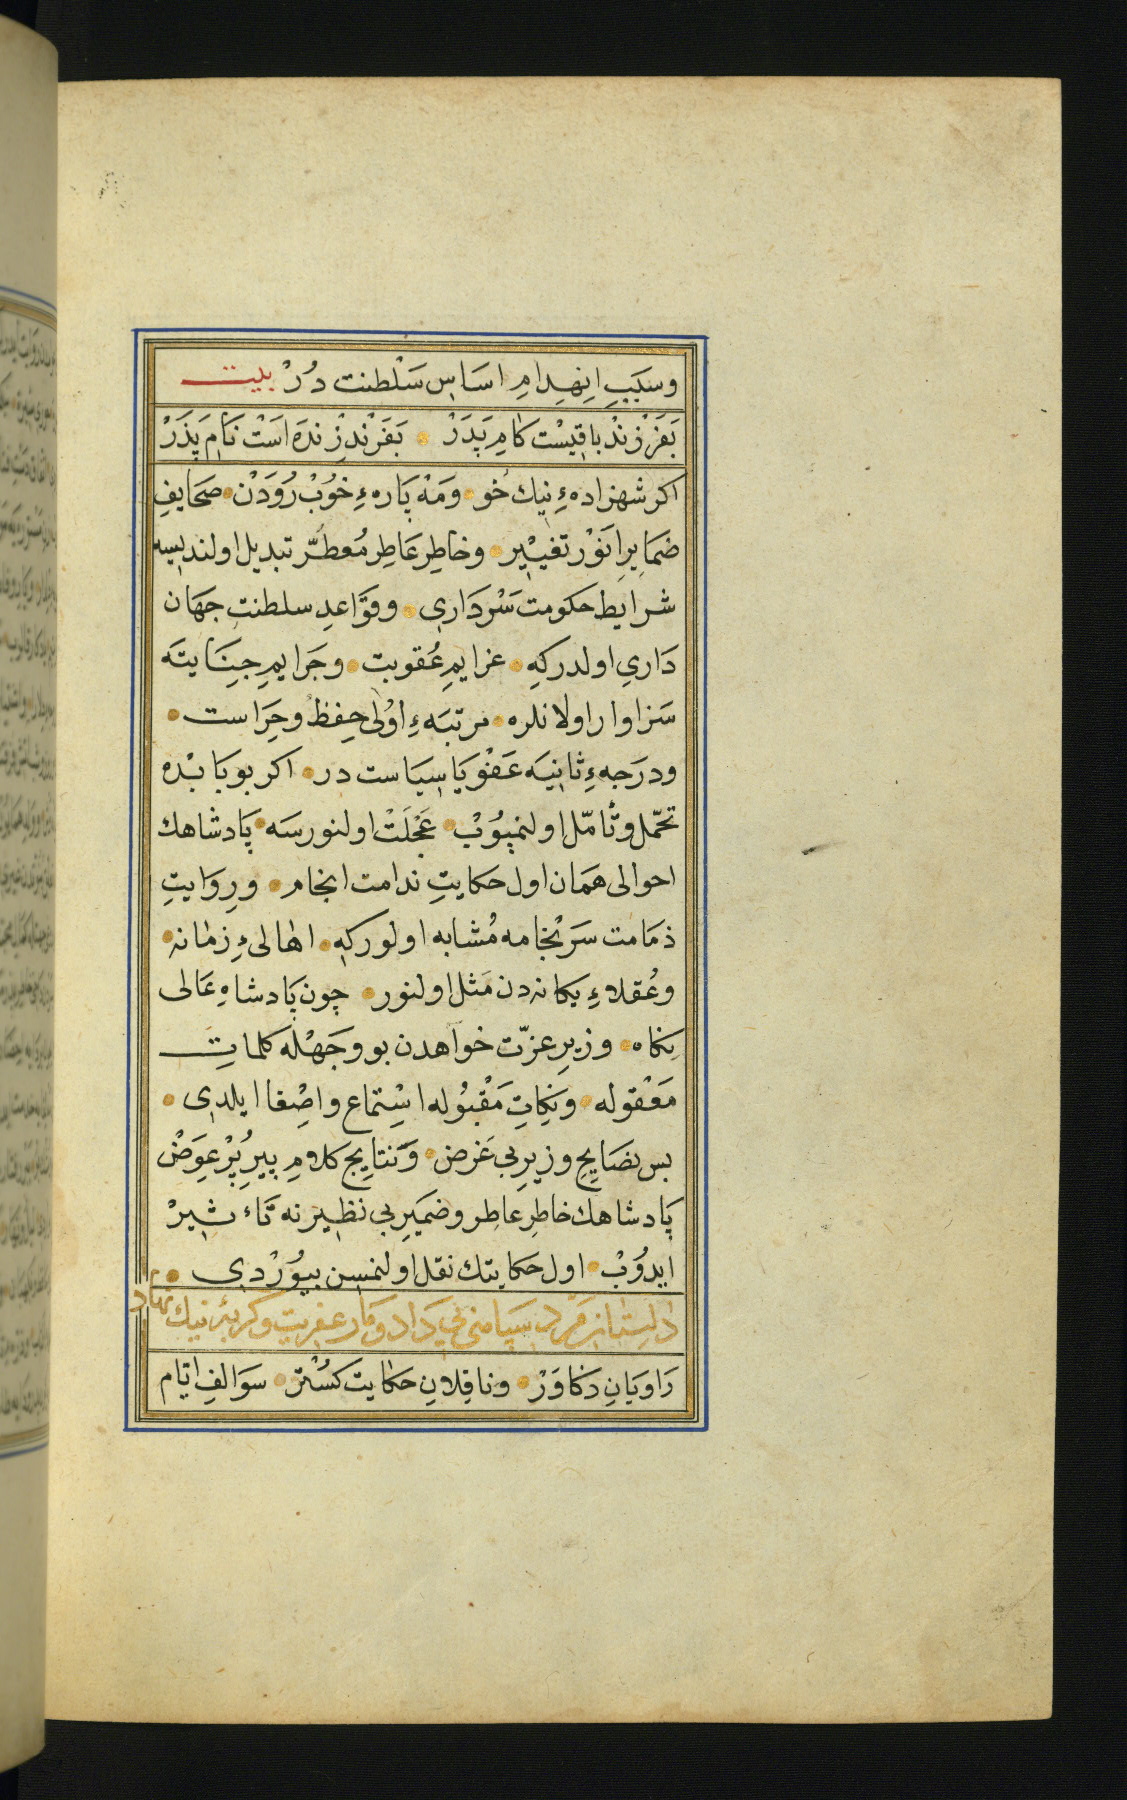 وسببِ انهدامِ اساسِ سَلْطنت دُرْ بيت
بَفَرْزَنْد باقيسْت كامِ پَدَرْ • بَفَرْزَنْدِ زِنْدَه اسْت نَامِ پَدَرْ
اكر شهزاده‌ءِ نيك خُو • وَمَهْ پَاره‌ءِ خُوبْ رُوَدَنْ • صَحَايفِ
ضمَايرِ انَوْر تغيير • وخاطِرِ عَاطِرِ مُعطّر تبديل اولنديسه
شرايط حكومت سَرْدَارى • وقوَاعدِ سلطنتِ جهَان
دَارِي اولدر كِه • عزايمِ عُقوبت • وجَرايمِ جِنَايتَه
سَزاوار اولانلره • مرتبَه‌ءِ اوُلٰى حِفظ وحِرَاست •
ودرَجه‌ءِ ثانِيَه عَفْو يَا سِيَاست در • اكر بو بابْده
تحمّل وتأمّل اولنميُوبْ • عَجْلَتْ اولنورسَه • پَادشاهك
احوالى همَان اول حكايتِ ندامت انجام • ورِوَايتِ
ذمَامت سَرَنْجَامه مُشابه اولور كه • اهالىءِ زمانه •
وعُقلاءِ يكانه دن مَثل اولنور • چون پَادشاهِ عَالى
نكاه • وزيرِ عزّت خواهدن بو وجَهْله كلماتِ
مَعْقوله • ونِكاتِ مَقْبُوله اسْتماع واصْغا ايلدى •
بس نصَايحِ وزيرِ بى غرض • وَنتايجِ كلامِ پيرِ پُرْ عِوَضْ
پَادشاهك خاطرِ عاطر وضميرِ بى نظيرنه تَاء ثيرْ
ايدُوبْ • اول حكايتك نقل اولنمسن بيوُرْدى •
داستان مرد سپاهى با داد ومار عفريت وكربهٔ نيك نهاد
رَاويَانِ دَكاوَرْ • وناقِلانِ حكايت كسْتر • سَوَالفِ ايّام